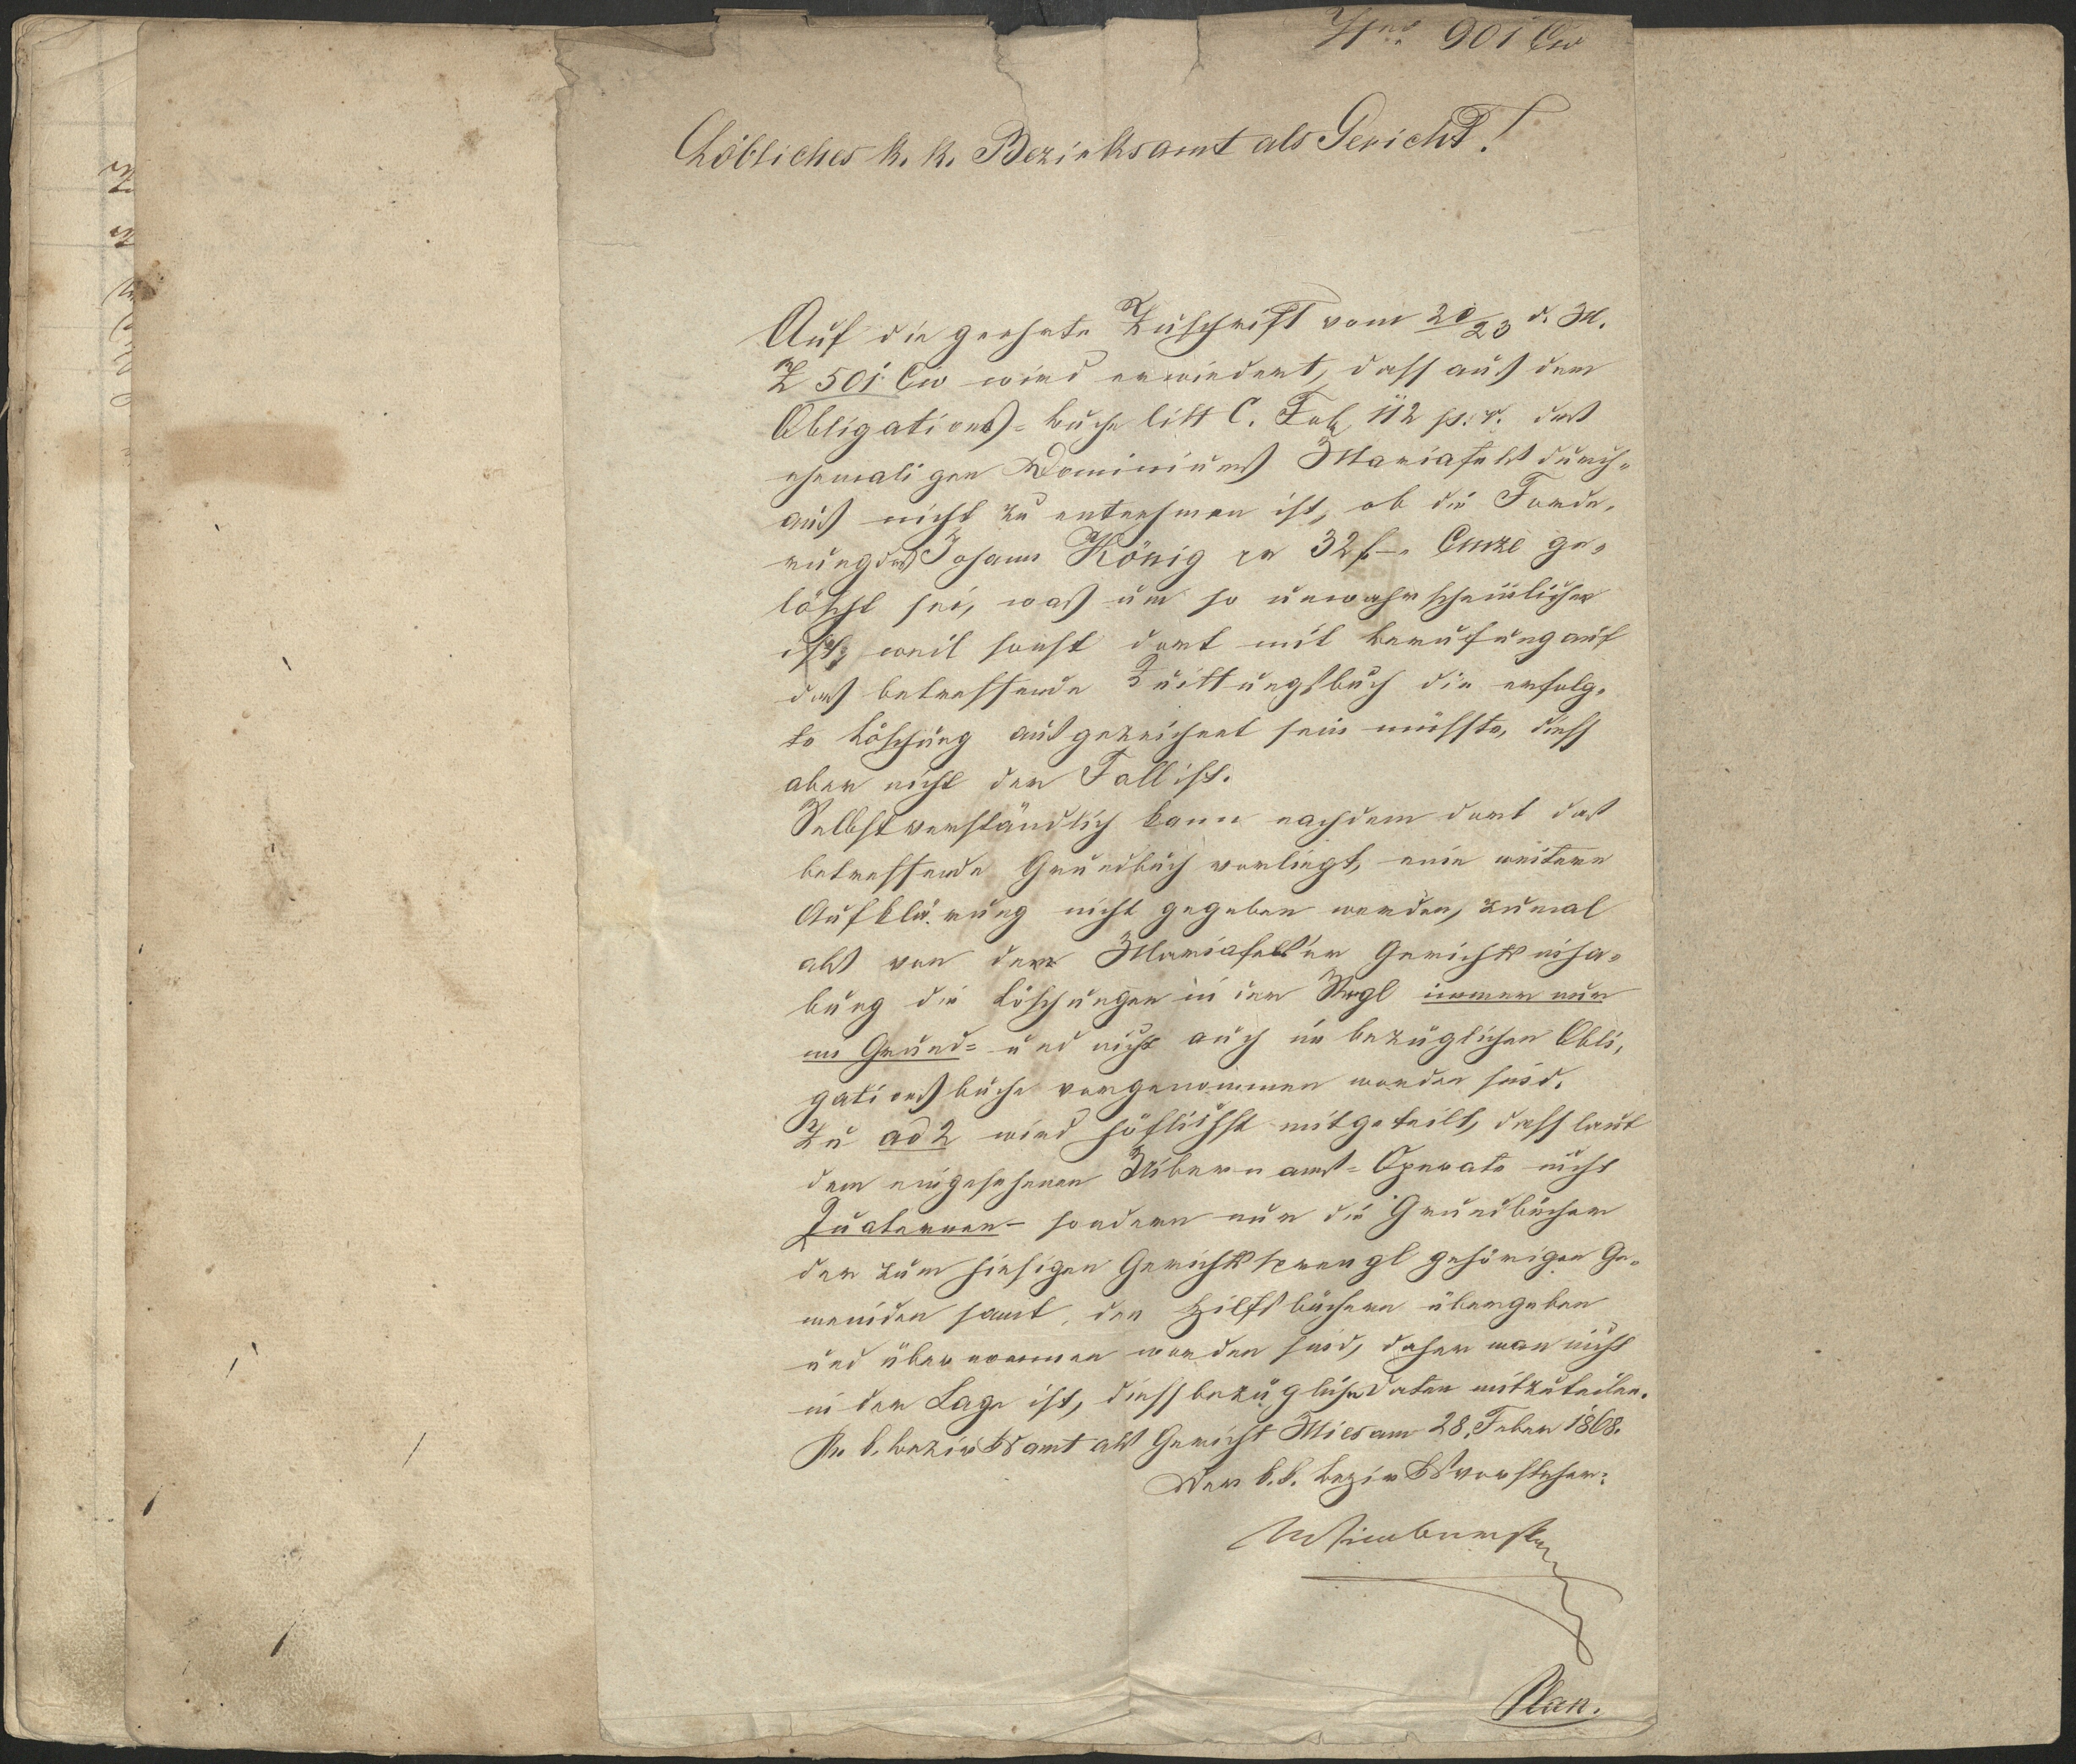 Nro. 901 Civ
Löbliches k. k. Bezirksamt als Gericht!
Auf die geehrte Zuschrift vom 20/23 d. M.
Z 501 Civ wird erwiedert, dass aus dem
Obligations-buche litt C. Fol. 112 p. v. des
ehemaligen Dominiums Mariafels durch-
aus nicht zu entnehmen ist, ob die Forde-
rung des Johann König per 32 f – Cmze ge-
löscht sei, was um so unwahrscheinlicher
ist, weil sonst dort mit Berufung auf
das betreffende Quittungsbuch die erfolg-
te Löschung ausgezeichnet sein müsste, diess
aber nicht der Fall ist.
Selbstverständlich kann nachdem dort das
betreffende Grundbuch vorliegt, eine weitere
Aufklärung nicht gegeben werden, zumal
als von der Mariafels'er Gerichtsinha-
bung die Löschungen in der Regl immer nur
im Grund- und nicht auch im bezüglichen Obli-
gationsbuche vorgenommen worden sind.
Zu ad 2 wird höflichst mitgeteilt, dass laut
dem eingesehenen Übernams-Operate nicht
Quaternen- sondern nur die Grundbücher
der zum hiesigen Gerichtssprengl gehörigen Ge-
meinden samt den Hilfsbüchern übergeben
und übernommen worden sind, daher man nicht
in der Lage ist, diessbezügliche Daten mitzuteilen.
K. k. Bezirksamt als Gericht Mies am 28. Feber 1868.
Der k. k. Bezirksvorsteher:
Plan.